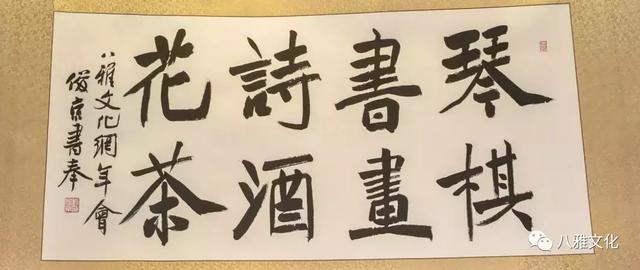 琴棋
書畫
詩酒
花茶
八雅文化網年會
俊京書奉
八雅文化